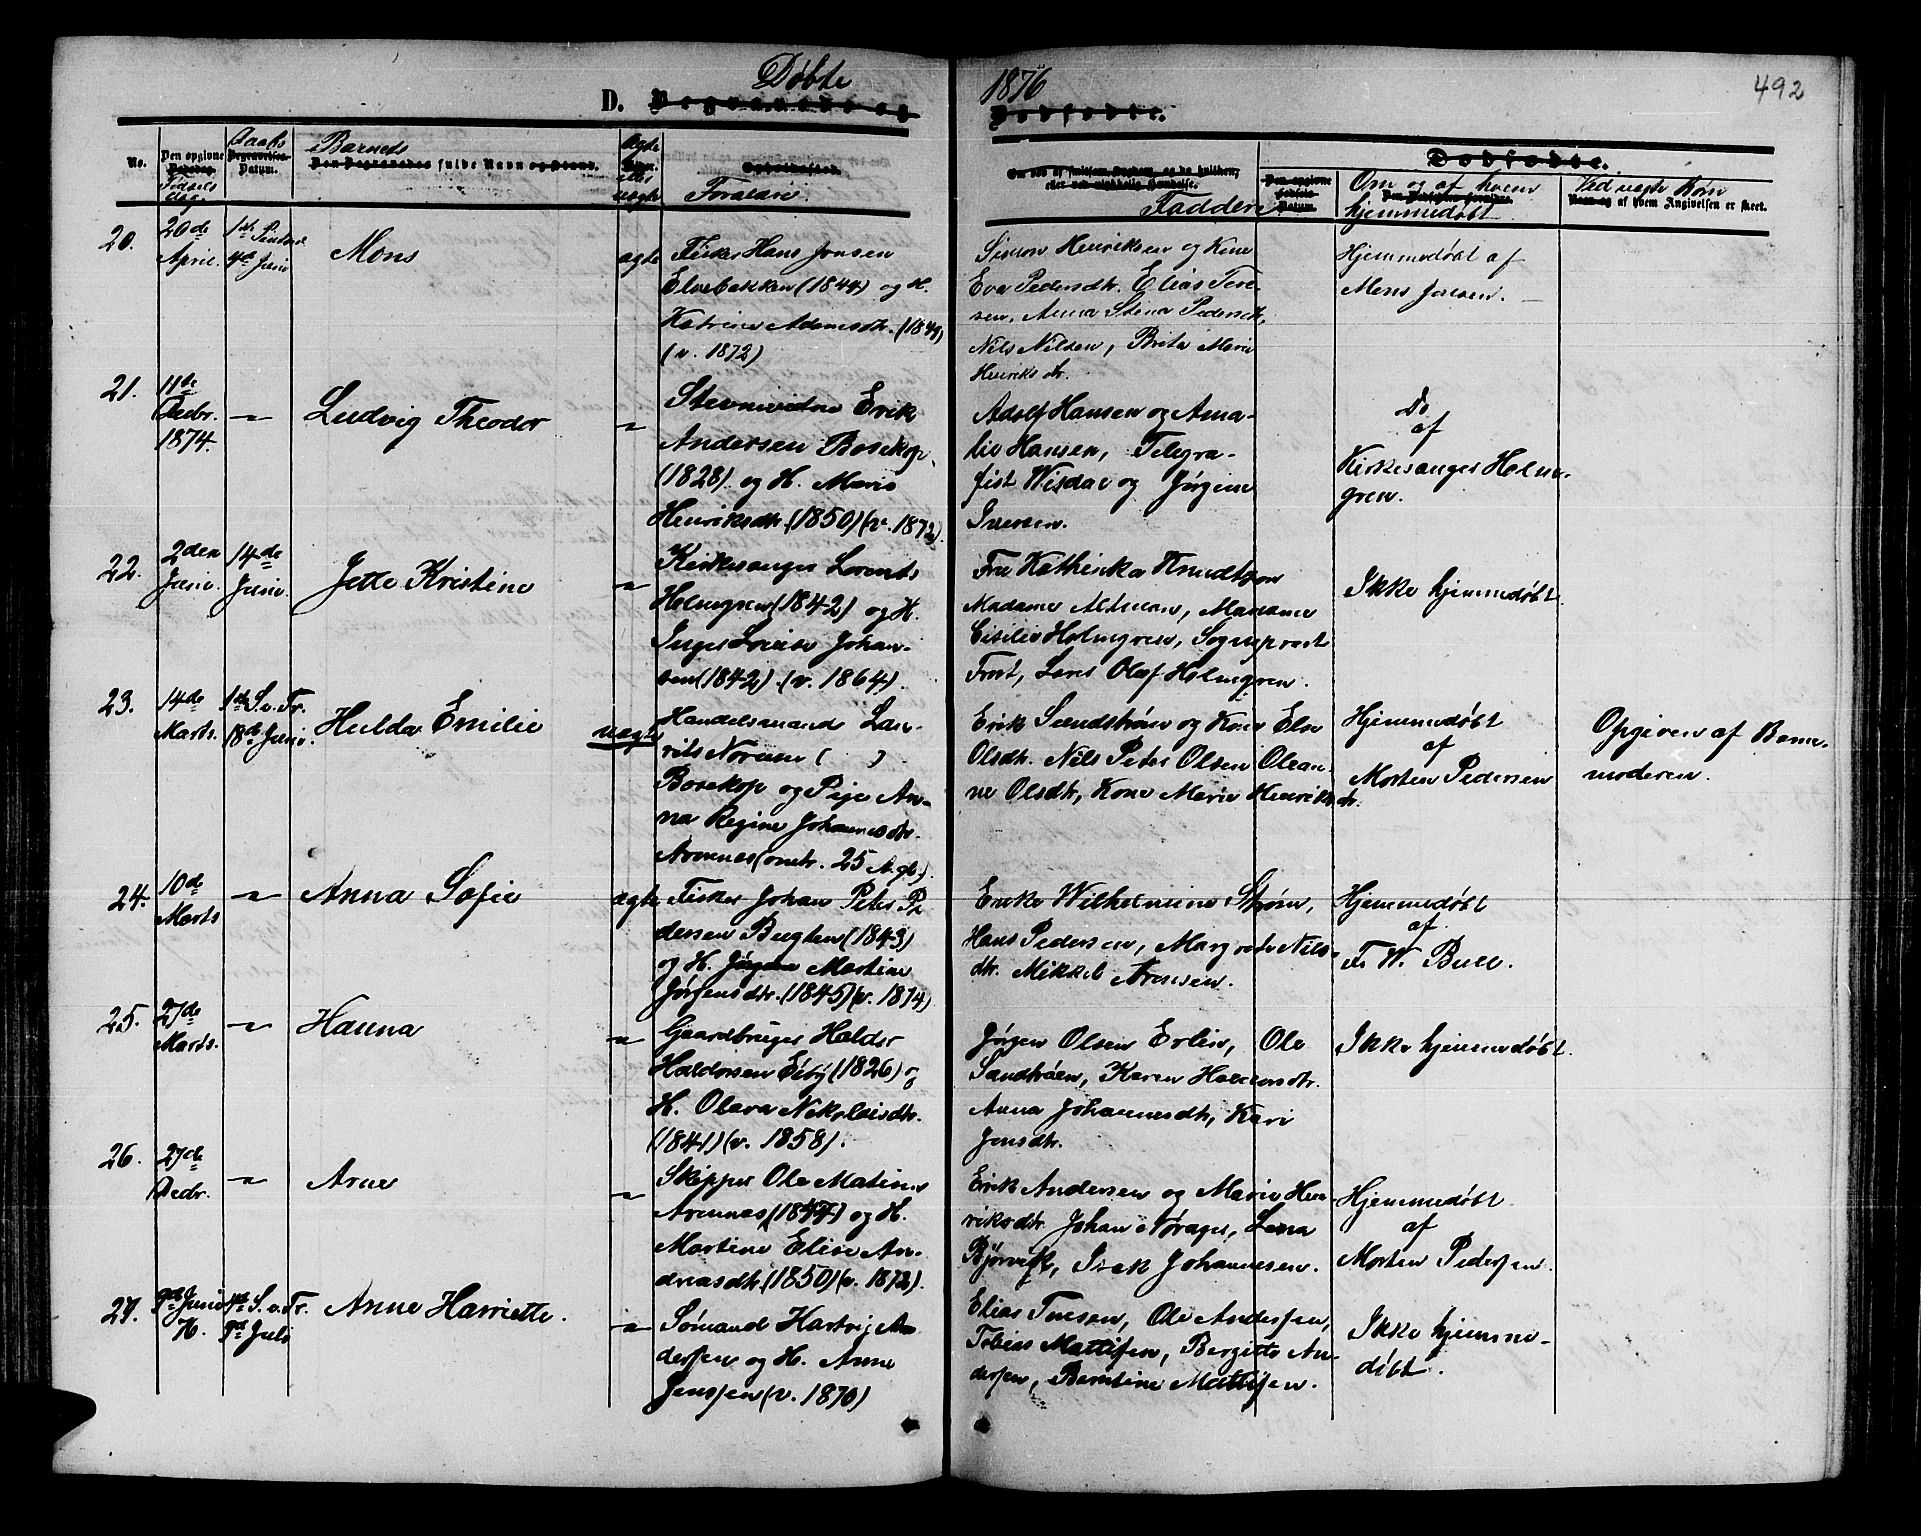 Döbte
D. Begravede og
1876
Dødfødte.
492
No.
Den opgivne Dødsdag
Fødsels Dag.
Daabs
Begravelses-Datum.
Barnets
Den Begravedes fulde Navn og Stand.
Ægte
eller
uægte
Opholdssted.
Forældre
Faddere
Dødfødte.
Om og af hvem
hjemmedøbt
Ved uægte Børn
af hvem Angivelsen er skeet.
20.
20de
April.
1ste Pintsed.
4de Juni
Mons
ægte
Fisker Hans Jonsen
Elvebakken (1844) og H.
Katrine Adamsdtr. (1849)
(v. 1872)
Simon Henriksen og Kone
Eva Pedersdtr. Elias Ive-
sen, Anna Stina Pedersdtr,
Nils Nilsen, Brita Marie
Henriksdtr.
Hjemmedøbt af
Mons Jonsen.
21.
11te
Decbr.
1874.
"
Ludvig Theodor
"
Stevnevidne Erik
Andersen Bosekop
(1828) og H. Marie
Henriksdtr. (1850) (v. 1872)
Adolf Hansen og Ama-
lie Hansen, Telegra-
fist Wisdal og Jørgine
Iversen.
Do
af
Kirkesanger Holm-
gren.
22.
2den
Juni.
14de
Juni.
Jette Kristine
"
Kirkesanger Lorents
Holmgren (1842) og H.
Inger Lovise Johan-
sen (1842). (v. 1864).
Fru Kathinka Knudtzon
Madame Altman, Madame
Cisilie Holmgren, Sogneprest
Frost, Lars Olaf Holmgren.
Ikke hjemmedøbt.
23.
14de
Marts.
1ste S. e. Tr.
18de Juni.
Hulda Emilie
uægte
Handelsmand Lau-
rits Norum (   )
Bosekop og Pige An-
na Regine Johannesdtr.
Aronnes (omtr. 25 A. gl.).
Erik Sundstrøm og Kone Elen
Olsdtr. Nils Peter Olsen Olean-
ne Olsdtr, Kone Marie Henriksdtr.
Hjemmedøbt
af
Morten Pedersen
Opgiven af Barne-
moderen.
24.
10de
Marts
"
Anna Sofie
ægte
Fisker Johan Peter Pe
dersen Bugten (1843)
og H. Jørgine Martine
Jørgensdtr. (1845) (v. 1874)
Erika Wilhelmine Strøm,
Hans Pedersen, Margrete Nils-
dtr. Mikkel Arnesen.
Hjemmedøbt
af
F. W. Bull.
25.
27de
Marts.
"
Hanna
"
Gaardbruger Haldor
Haldorsen Eiby (1826) og
H. Olava Nikolaisdtr.
(1841) (v. 1858).
Jørgen Olsen Erlin, Ole
Sandtrøen, Karen Haldorsdtr.
Anna Johannesdtr, Kari
Jensdtr.
Ikke hjemmedøbt.
26.
27de
Decbr.
"
Arne
"
Skipper Ole Matin
Aronnes (1844) og H.
Martine Elise An-
dreasdtr. (1850) (v. 1872).
Erik Andersen og Marie Hen-
riksdtr. Johan Norager, Lena
Bjørvik, Isak Johannesen.
Hjemmedøbt
af
Morten Pedersen.
27.
9de Juni
H.
4de S. e. Tr.
9de Juli
Anne Harriette.
"
Sømand Hartvig An
dersen og H. Anne
Jenssen (v. 1870)
Elias Ivesen, Ole Andersen,
Tobias Mattisen, Bergitte An-
dersen, Berntine Mattisen.
Ikke hjemme-
døbt.